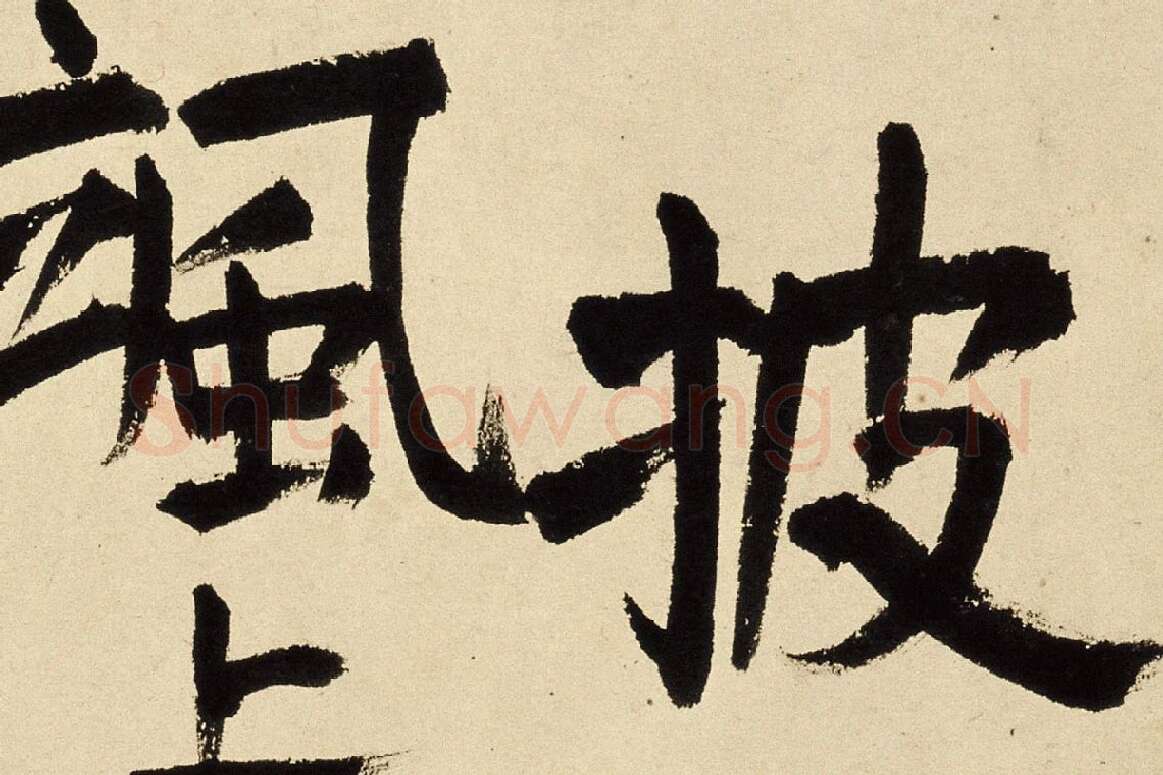 披
颯
Shufawang.CN